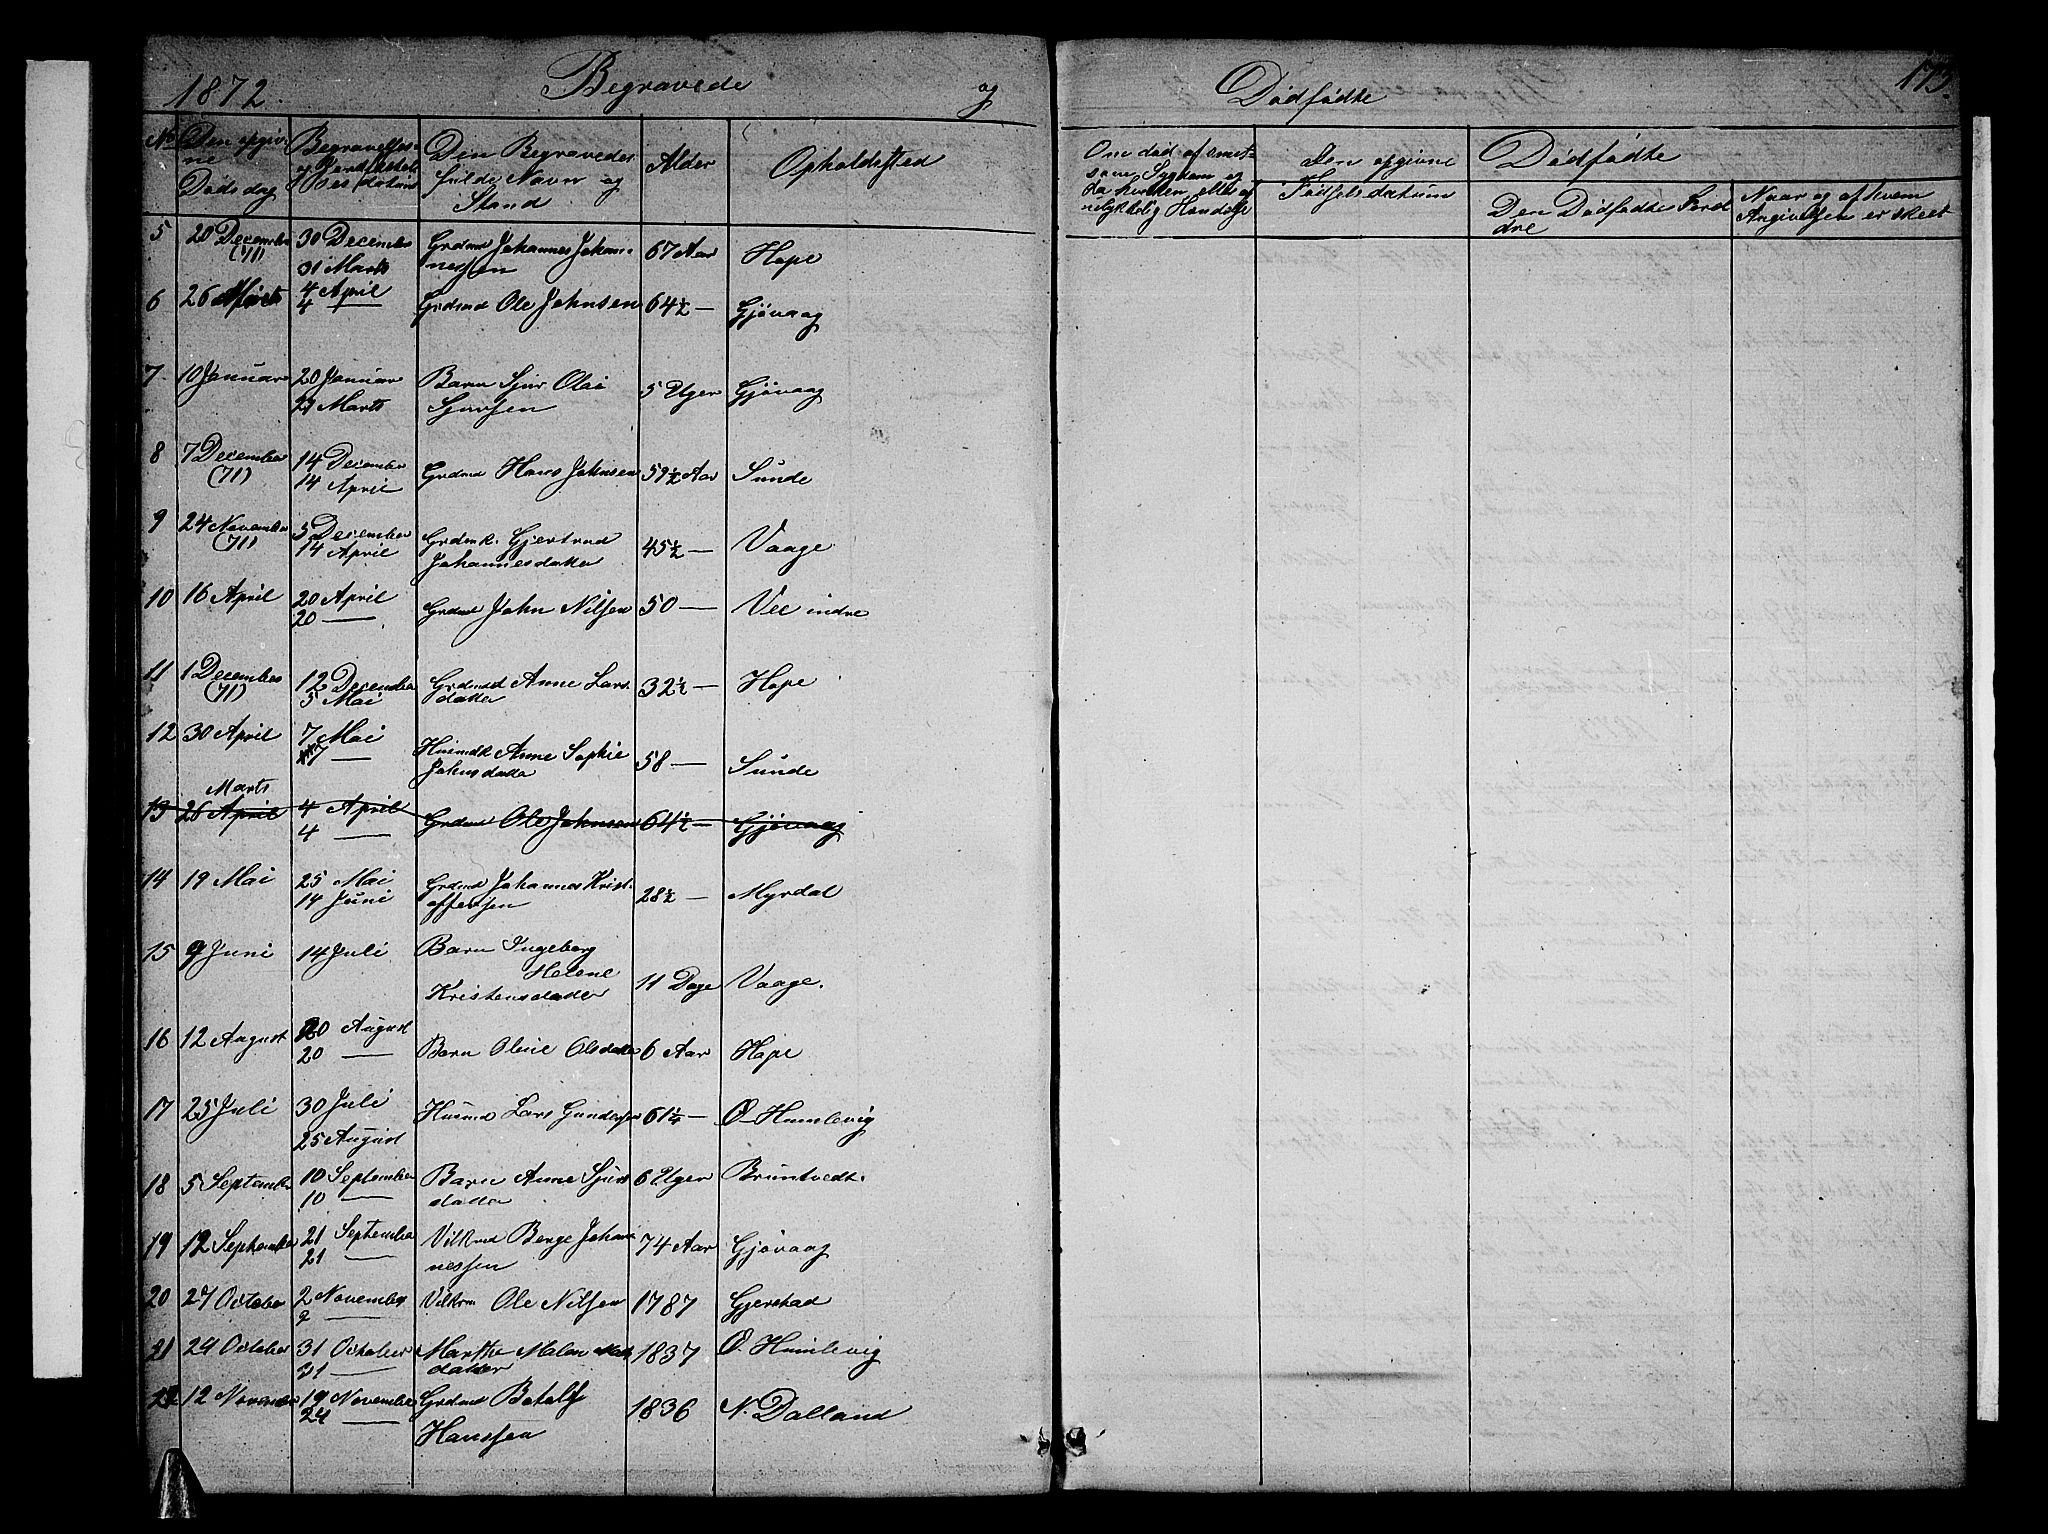 1872. Begravede og Dødfødte 173.
No Den opgivne Dødsdag
Begravelses- og Jordfæstelsesdatum
Den Begravedes fulde Navn og Stand
Alder
Opholdssted
Om død af smitsom Sygdom og da hvilken, eller af ulykkelig Hændelse
Den opgivne Fødselsdatum
Dødfødte
Den Dødfødtes Foreldre
Naar og af hvem Angivelsen er skeet
5 20 December (71) 30 December 31 Marts Grdmd Johannes Johannessen 67 Aar Hope
6 26 Marts 4 April 4 — Grdmd Ole Johnsen 64½ — Gjøvaag
7 10 Januar 20 Januar 29 Marts Barn Sjur Olai Sjursen 5 Uger Gjøvaag
8 7 December (71) 14 December 14 April Grdmd Hans Johnsen 59½ Aar Sunde
9 24 November (71) 5 December 14 April Grdmk. Gjertrud Johannesdatter 45½ — Vaage
10 16 April 20 April 20 — Grdmd John Nilsen 50 — Vee indre
11 1 December (71) 12 December 5 Mai Grdmd Anne Larsdatter 32½ — Hope
12 30 April 7 Mai 7 — Husmdk Anne Sophie Johnsdatter 58 — Sunde
13 26 April Marts 4 April 4 — Grdmd Ole Johnsen 64½ — Gjøvaag
14 19 Mai 25 Mai 14 Juni Grdmd Johannes Kristoffersen 28½ — Myrdal
15 9 Juni 14 Juli Barn Ingeborg Helene Kristensdatter 11 Dage Vaage.
16 12 August 20 August 20 — Barn Oline Olsdatter 6 Aar Hope
17 25 Juli 30 Juli 25 August Husmd Lars Gundersen 61¼ — Ø Humlevig
18 5 September 10 September 10 — Barn Anne Sjursdatter 6 Uger Bruntvedt.
19 12 September 21 September 21 — Vilkmd Berge Johannessen 74 Aar Gjøvaag
20 27 October 2 November 2 — Vilkm Ole Nilsen 1787 Gjerstad
21 24 October 31 October 31 — Marthe Malene datter 1837 Ø. Humlevig
22 12 November 19 November 24 — Grdmd Botolf Hanssen 1836 N. Dalland